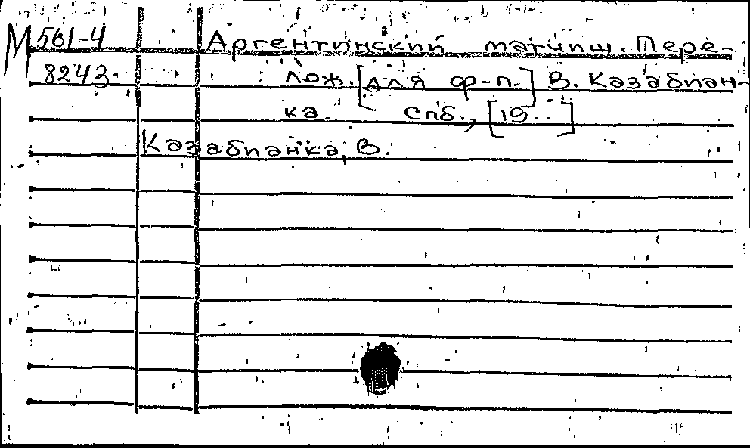 М 561-4 Аргентинский матчиш. Пере-
8243. лож. [для ф-п.] В. Казабиан-
ка. Спб., [19..]
Казабианка, В.